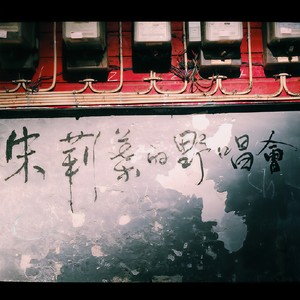 朱莉葉的野唱會